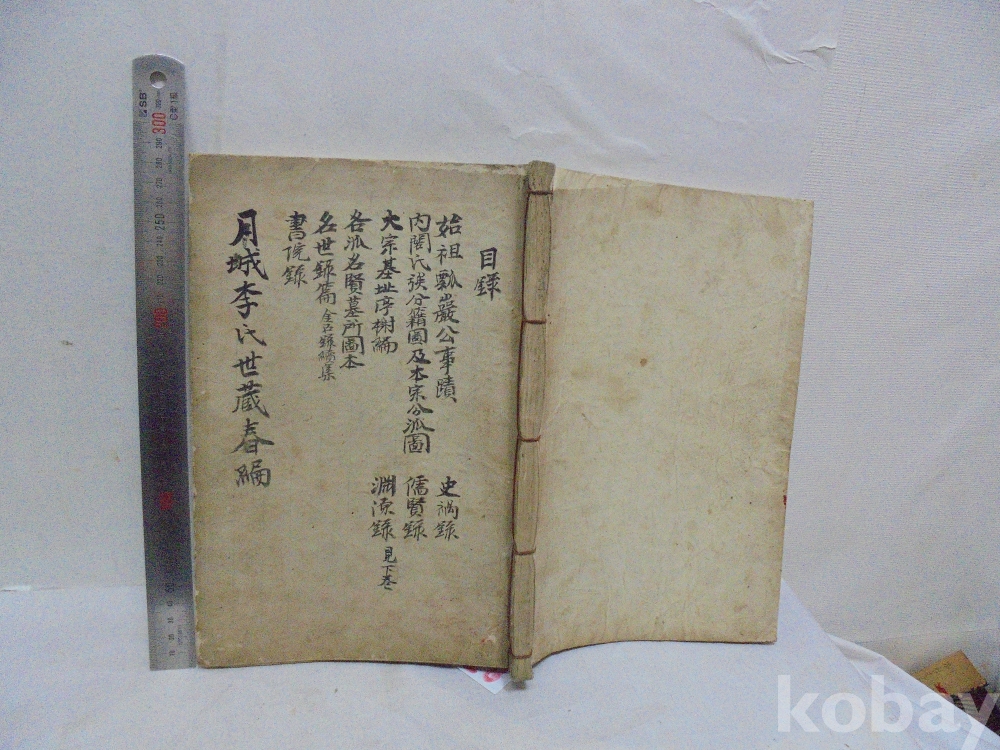 目錄
始祖瓢巖公事蹟
內閣氏族分籍圖及本宗分派圖
大宗基址序榭編
各派名賢墓所圖本
名世錄篇
書院錄
史禍錄
儒賢錄
淵源錄 見下卷
月城李氏世蔵春編
SB
300
250
kobay